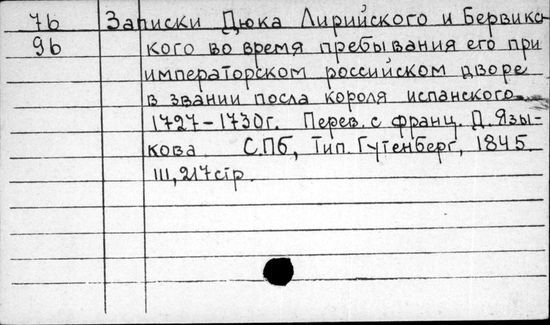 7б Записки Дюка Лирийского и Бервикс-
9б кого во время пребывания его при
императорском российском дворе
в звании посла короля испанского
1727-1730г. Перев. с франц. Д. Язы-
кова С.Пб, Тип. Гутенберг, 1845.
III, 217стр.